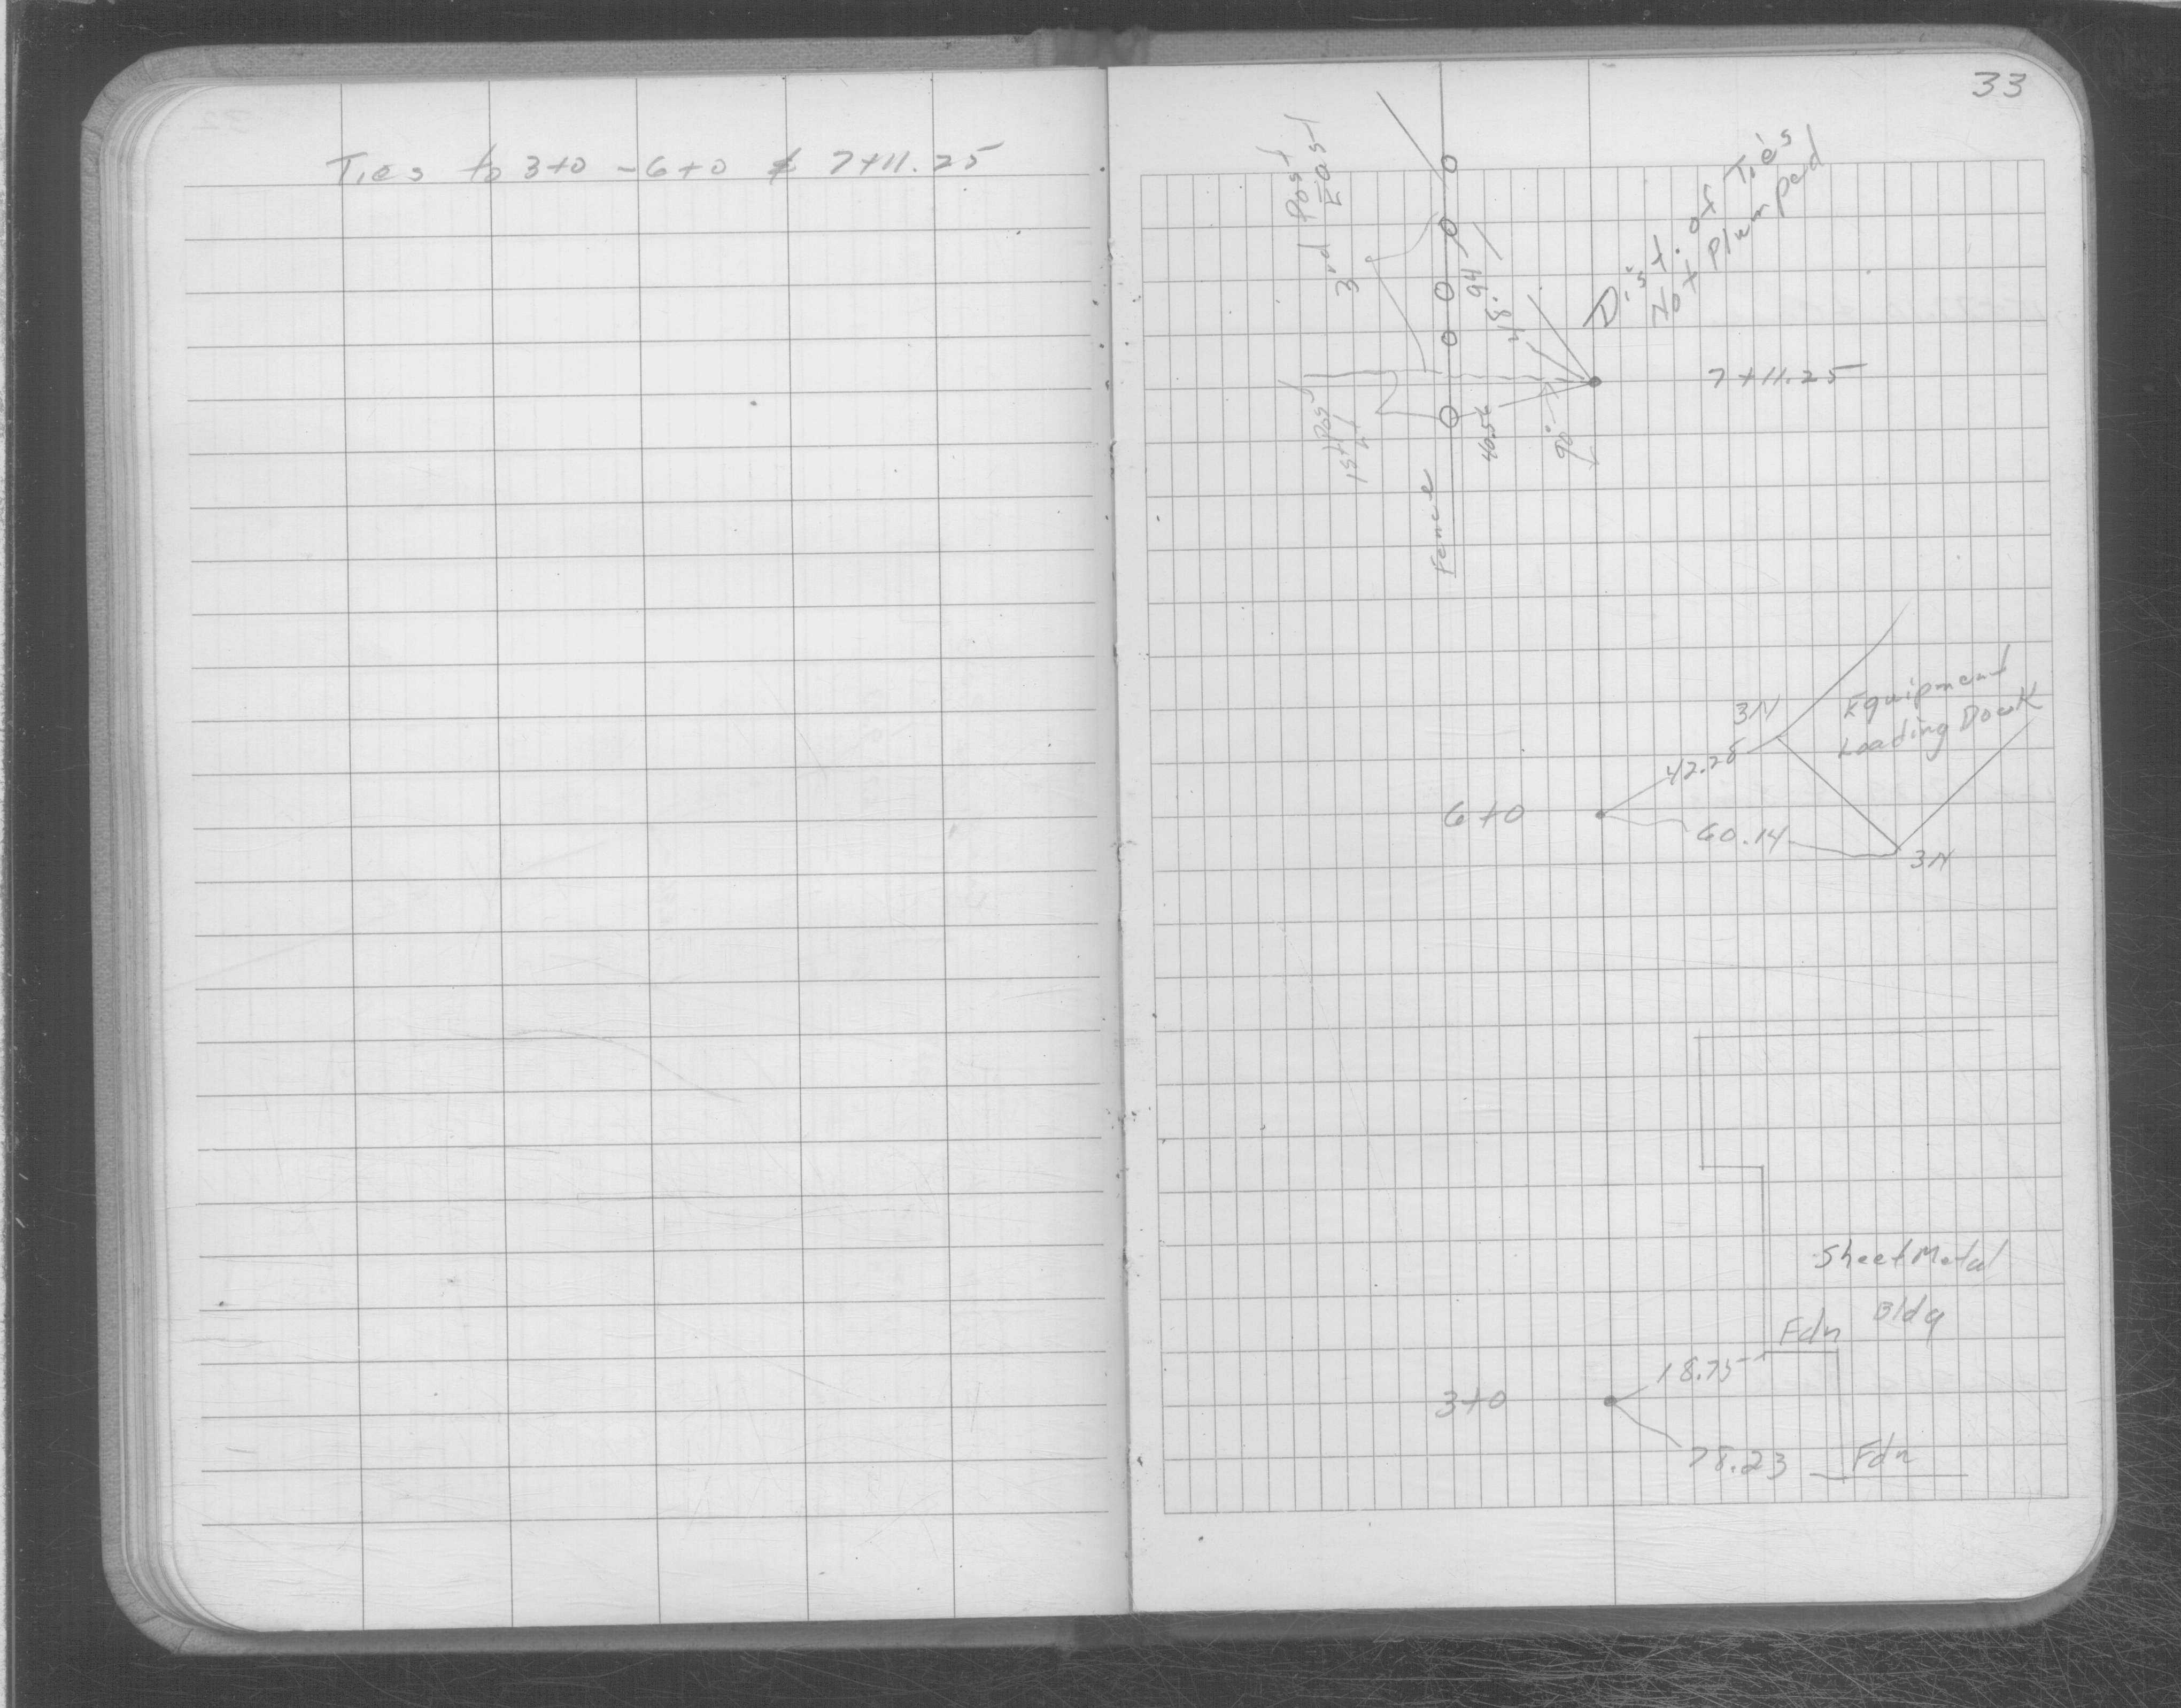 33
Ties to 3+0 - 6+0 & 7+11.25
3rd Post
East
Dist. of Ties
Not Plumpad
48.94
7+11.25
1st Post
40.56
90°
Fence
3N
Equipment
Loading Dock
42.28
6+0
60.14
3N
Sheet Metal
Bldg
Fdn
18.75
3+0
78.23
Fdn